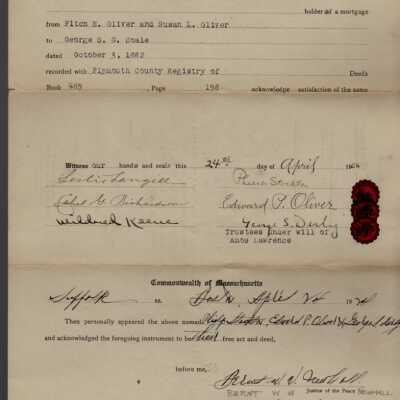 holder of a mortgage
from Fitch E. Oliver and Susan L. Oliver
to George S. G.
dated October 3, 1882
recorded with Plymouth County Registry of Deeds
Book 485 , Page 198 acknowledge satisfaction of the same
Witness our hands and seals this 24th day of April
Leslie Langill
Ethel G. Richardson Edward P. Oliver
Mildred Keene George S. Derby
Trustees under will of
Amos Lawrence
Commonwealth of Massachusetts
Suffolk ss. Boston, April 24
Then personally appeared the above named Edward P. Oliver & George S. Derby
and acknowledged the foregoing instrument to be their free act and deed,
before me,
Newhall
Justice of the Peace NEWHALL